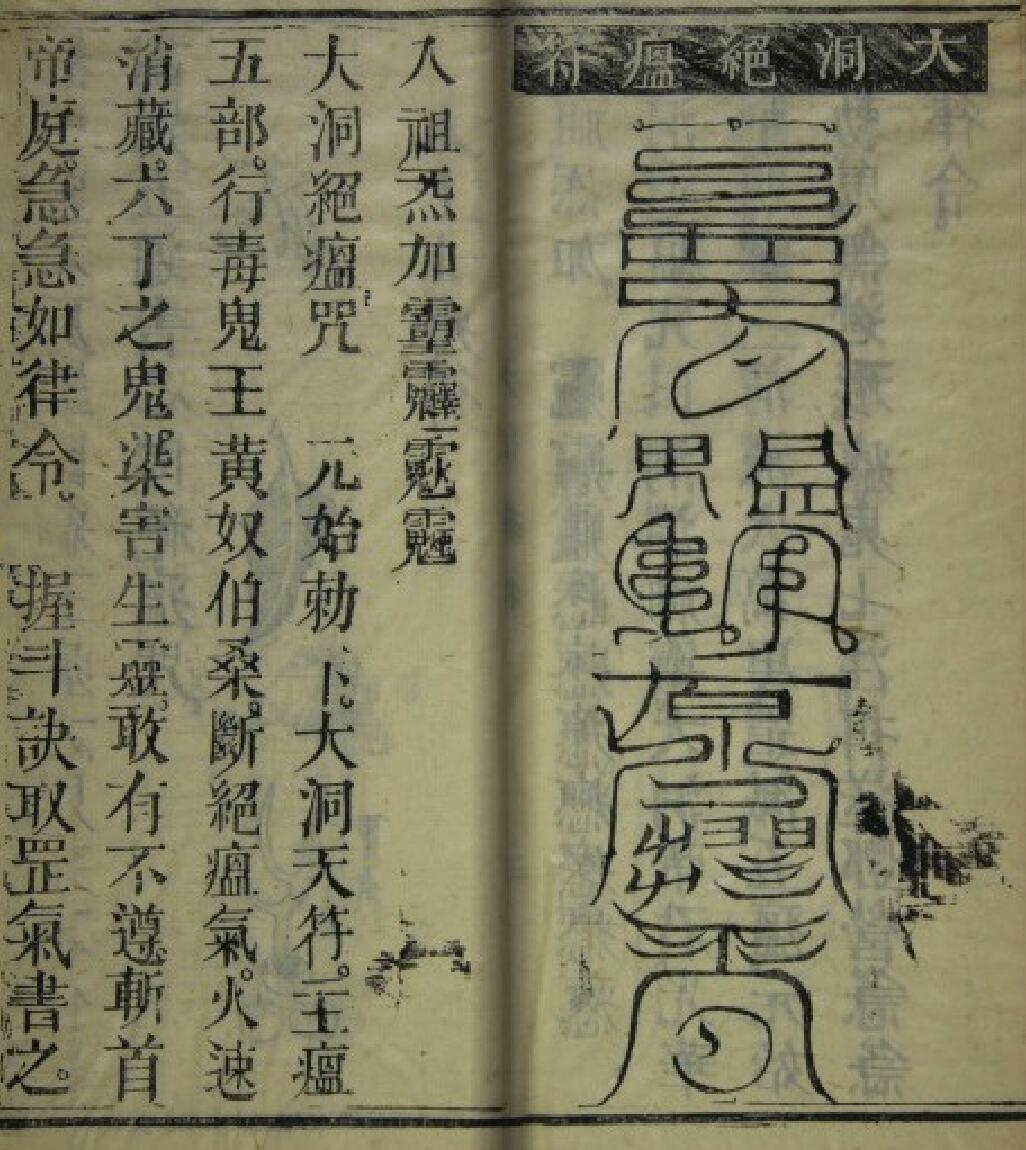 大洞絕瘟符
人祖炁加
大洞絕瘟咒　元始勅下。大洞天符。主瘟
五部。行毒鬼王。黃奴伯桑。斷絕瘟氣。火速
消藏。六丁之鬼。深害生靈。敢有不遵。斬首
帝庭。急急如律令。　握斗訣取罡氣書之。